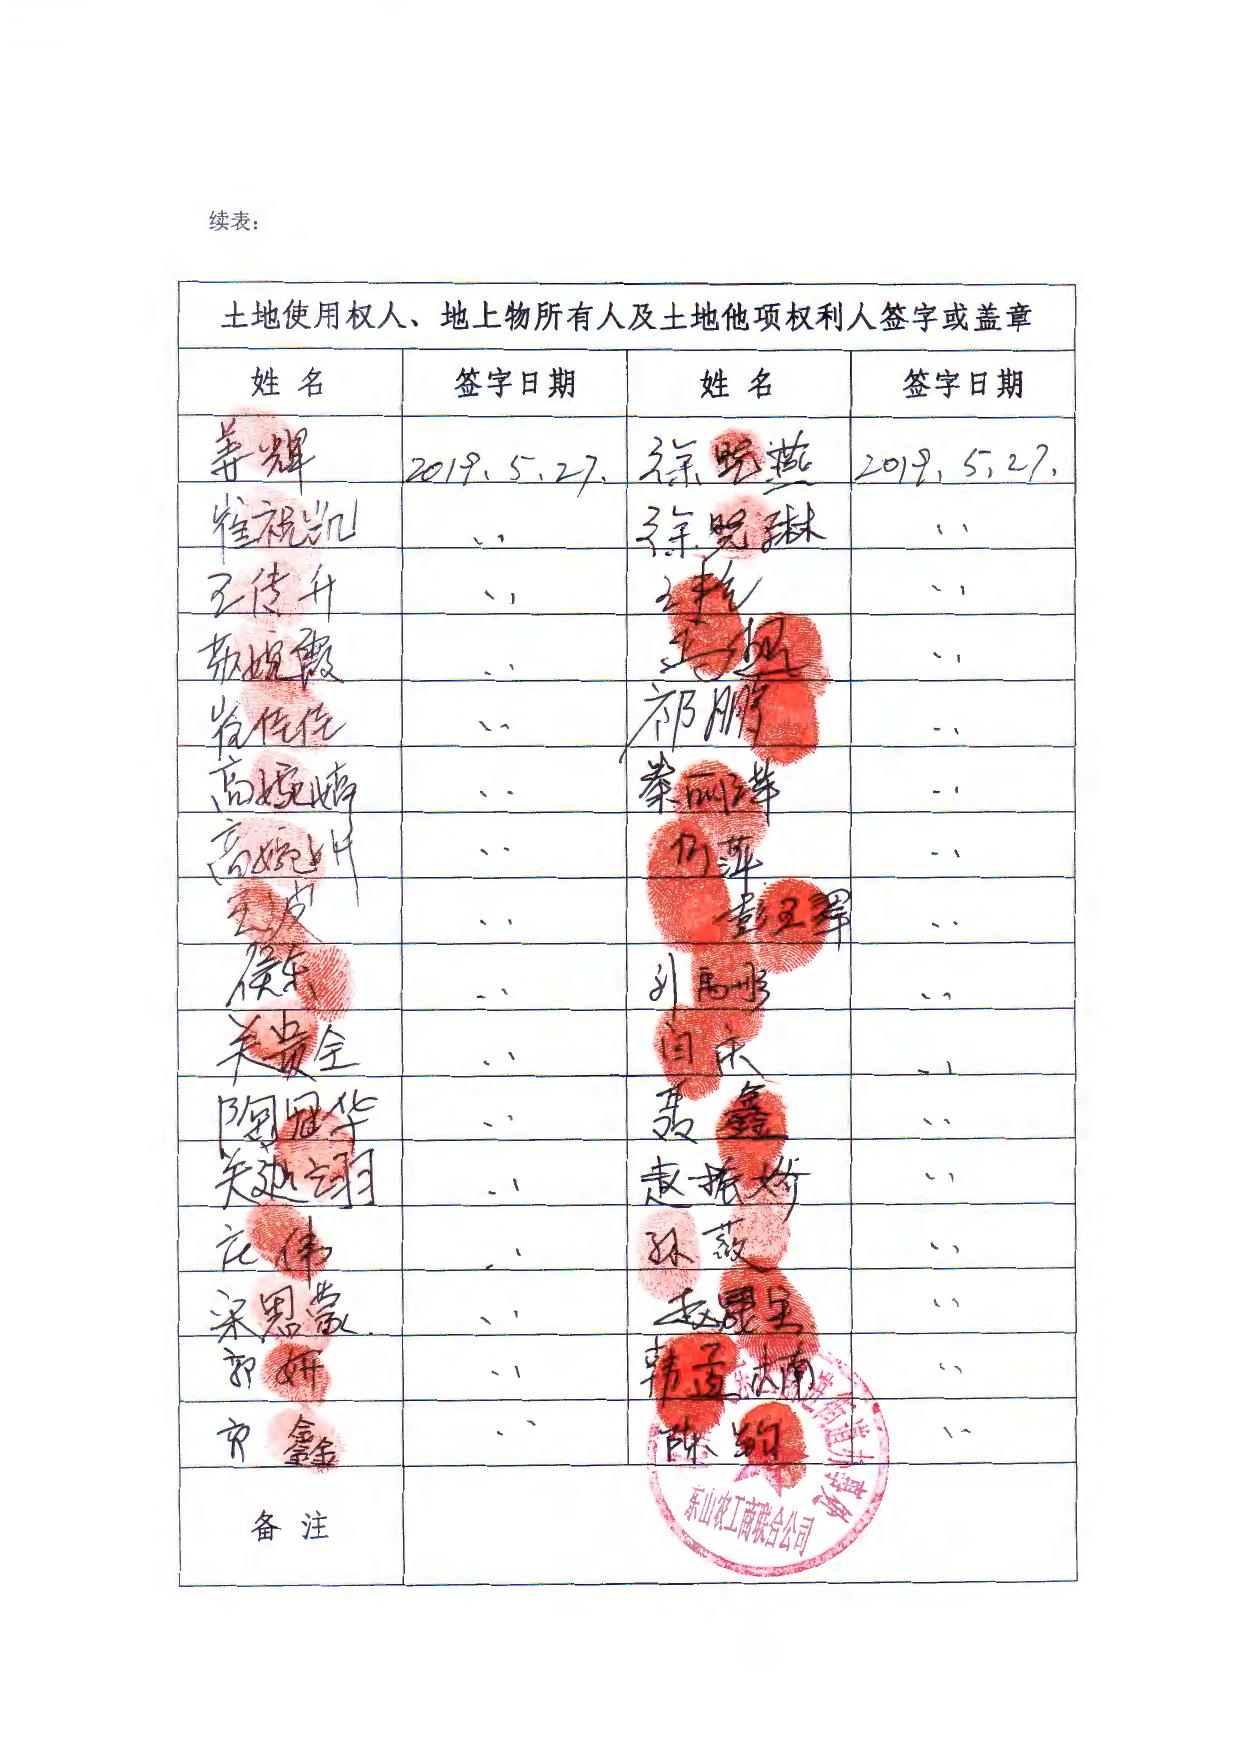 续表:
土地使用权人、地上物所有人及土地他项权利人签字或盖章
姓 名 签字日期 姓 名 签字日期
姜辉 2019.5.27. 徐晓燕 2019.5.27.
崔祝凯 〃 徐晓琳 〃
王传升 〃 〃
婉霞 〃 〃
崔佳佳 〃 祁鹏 〃
高婉婷 〃 秦丽萍 〃
高婉 〃 何萍 〃
〃 彭玉翠 〃
侯东 〃 刘禹彤 〃
关贵全 〃 闫 〃
陶冠华 〃 聂鑫 〃
关 羽 〃 赵振娇 〃
伟 〃 孙薇 〃
宋思蒙 〃 赵 〃
郭妍 〃 韩孟 南 〃
鑫 〃 陈 〃
备 注
东山农工商联合公司